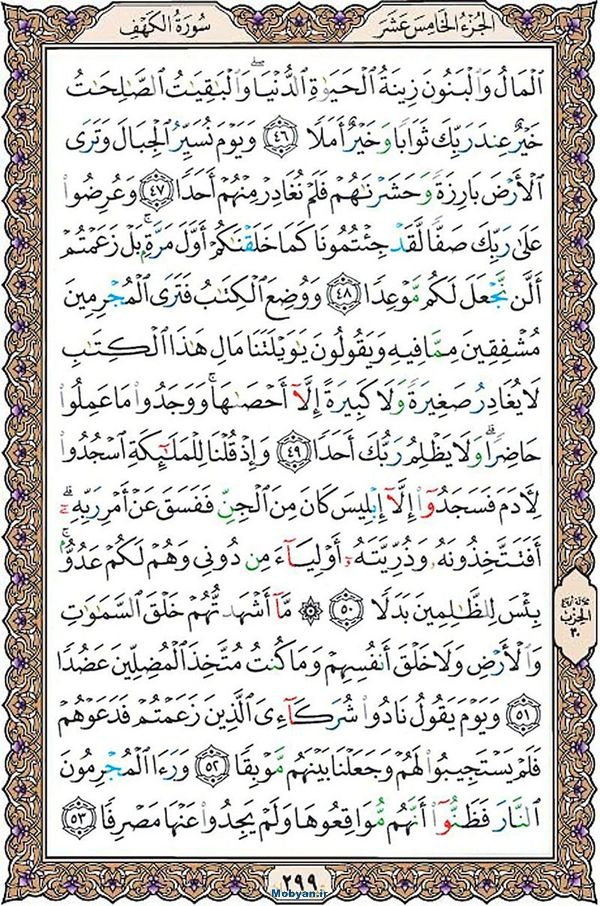 الجُزءُ الخَامِس عَشَر
سُورَةُ الكَهْف
الْمَالُ وَالْبَنُونَ زِينَةُ الْحَيَوٰةِ الدُّنْيَاۖ وَالْبَٰقِيَٰتُ الصَّٰلِحَٰتُ
خَيْرٌ عِندَ رَبِّكَ ثَوَابًا وَخَيْرٌ أَمَلًا ﴿٤٦﴾ وَيَوْمَ نُسَيِّرُ الْجِبَالَ وَتَرَى
الْأَرْضَ بَارِزَةً وَحَشَرْنَٰهُمْ فَلَمْ نُغَادِرْ مِنْهُمْ أَحَدًا ﴿٤٧﴾ وَعُرِضُوا
عَلَىٰ رَبِّكَ صَفًّا لَّقَدْ جِئْتُمُونَا كَمَا خَلَقْنَٰكُمْ أَوَّلَ مَرَّةٍۭۚ بَلْ زَعَمْتُمْ
أَلَّن نَّجْعَلَ لَكُم مَّوْعِدًا ﴿٤٨﴾ وَوُضِعَ الْكِتَٰبُ فَتَرَى الْمُجْرِمِينَ
مُشْفِقِينَ مِمَّا فِيهِ وَيَقُولُونَ يَٰوَيْلَتَنَا مَالِ هَٰذَا الْكِتَٰبِ
لَا يُغَادِرُ صَغِيرَةً وَلَا كَبِيرَةً إِلَّآ أَحْصَىٰهَاۚ وَوَجَدُوا مَا عَمِلُوا
حَاضِرًاۗ وَلَا يَظْلِمُ رَبُّكَ أَحَدًا ﴿٤٩﴾ وَإِذْ قُلْنَا لِلْمَلَٰٓئِكَةِ اسْجُدُوا
لِأٓدَمَ فَسَجَدُوٓا إِلَّآ إِبْلِيسَ كَانَ مِنَ الْجِنِّ فَفَسَقَ عَنْ أَمْرِ رَبِّهِۦٓۗ
أَفَتَتَّخِذُونَهُۥ وَذُرِّيَّتَهُۥٓ أَوْلِيَآءَ مِن دُونِي وَهُمْ لَكُمْ عَدُوٌّۢۚ
بِئْسَ لِلظَّٰلِمِينَ بَدَلًا ﴿٥٠﴾ ۞ مَّآ أَشْهَدتُّهُمْ خَلْقَ السَّمَٰوَٰتِ
وَالْأَرْضِ وَلَا خَلْقَ أَنفُسِهِمْ وَمَا كُنتُ مُتَّخِذَ الْمُضِلِّينَ عَضُدًا
﴿٥١﴾ وَيَوْمَ يَقُولُ نَادُوا شُرَكَآءِيَ الَّذِينَ زَعَمْتُمْ فَدَعَوْهُمْ
فَلَمْ يَسْتَجِيبُوا لَهُمْ وَجَعَلْنَا بَيْنَهُم مَّوْبِقًا ﴿٥٢﴾ وَرَءَا الْمُجْرِمُونَ
النَّارَ فَظَنُّوٓا أَنَّهُم مُّوَاقِعُوهَا وَلَمْ يَجِدُوا عَنْهَا مَصْرِفًا ﴿٥٣﴾
الحِزب
٣٠
٢٩٩
Mobyan.ir